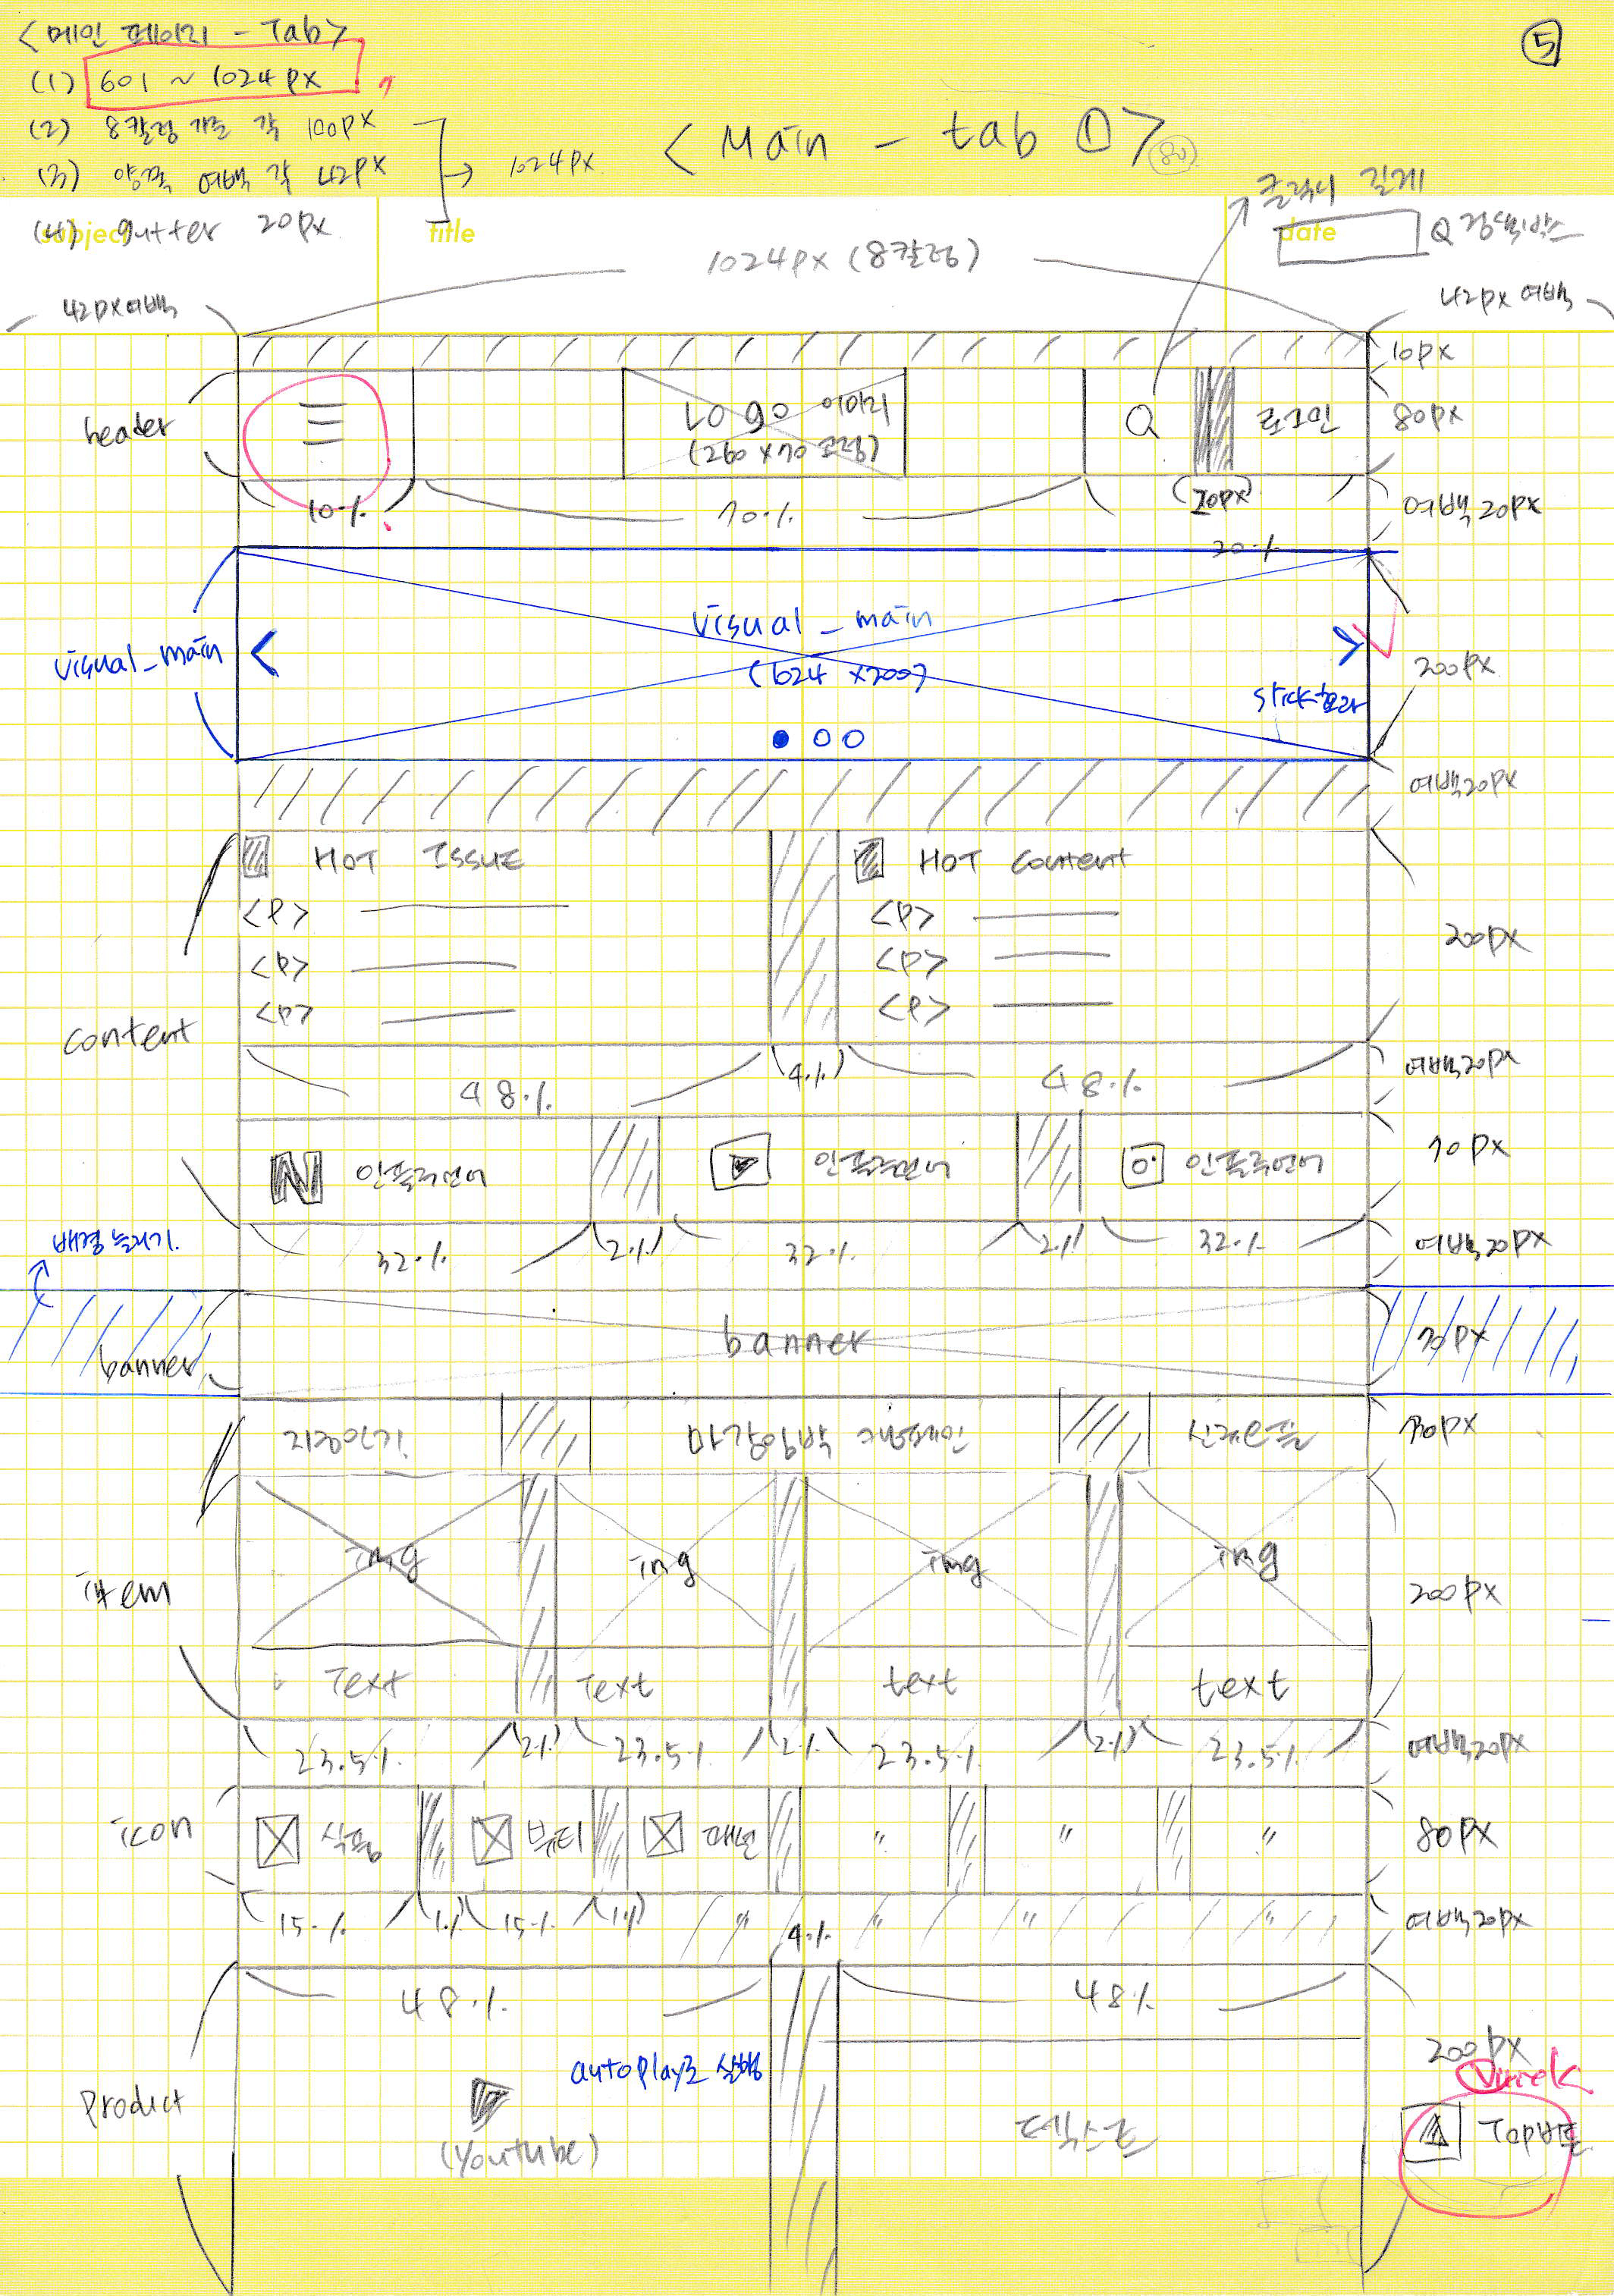 <메인 페이지 - Tab>
(1) 601 ~ 1024px
(2) 8칼럼 기준 각 100px
(3) 양쪽 여백 각 42px
→ 1024px
(4) gutter 20px
⑤
<Main - tab ①>
80
subject
title
date
클릭시 길게
Q 검색박스
1024px (8칼럼)
42px여백
42px 여백
10px
header
LOGO 이미지
(260 x 70 고정)
Q
로그인
80px
10%
70%
(20px)
20%
여백20px
visual_main
<
visual_main
(1024 x200)
>
200px
여백20px
HOT ISSUE
HOT Content
<P>
<P>
<P>
<P>
<P>
<P>
200px
content
48%
(4%)
48%
여백20px
N 인플루언서
인플루언서
인플루언서
70px
배경 늘리기
32%
(2%)
32%
(2%)
32%
여백20px
banner
banner
70px
지금인기
마감임박 캠페인
신제품
item
img
img
img
img
200px
Text
Text
text
text
23.5%
(2%)
23.5%
(2%)
23.5%
(2%)
23.5%
여백20px
icon
식품
뷰티
패션
〃
〃
〃
80px
15%
(1%)
15%
(1%)
〃
4%
〃
〃
〃
여백20px
48%
48%
200px
product
autoplay로 실행
(Youtube)
텍스트
Quick
Top버튼